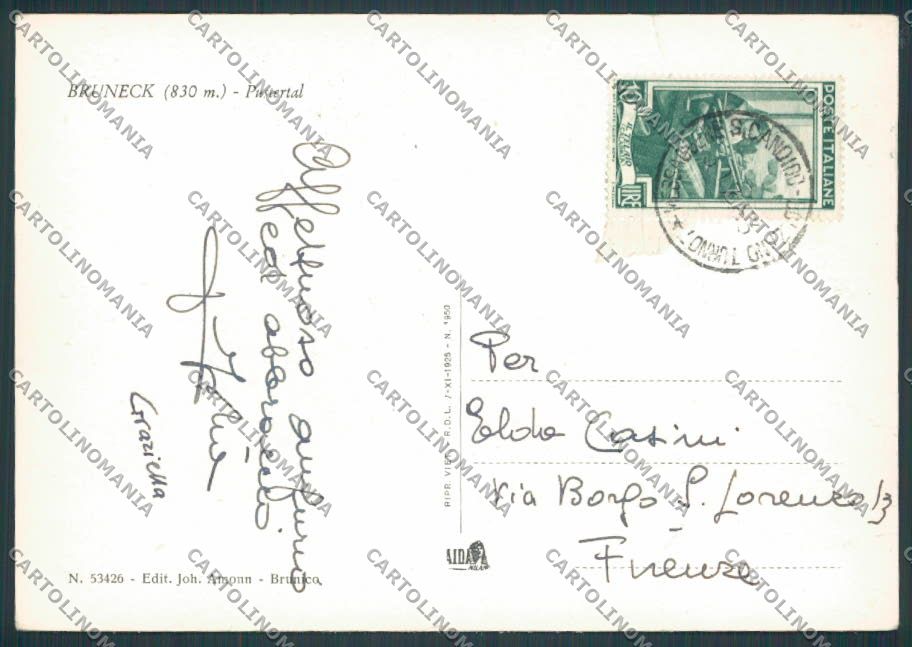 BRUNECK (830 m.) - Pustertal
Affettuoso augurio
ed abbraccio
Graziella
N. 53426 - Edit. Joh. Amonn - Brunico
RIPR. VIET. R.D.L. 7-XI-1925 - N. 1950
AIDA
MILANO
10
LIRE
POSTE ITALIANE
S. CANDIDO
Per
Elda Casini
Via Borgo S. Lorenzo 13
Firenze
CARTOLINOMANIA